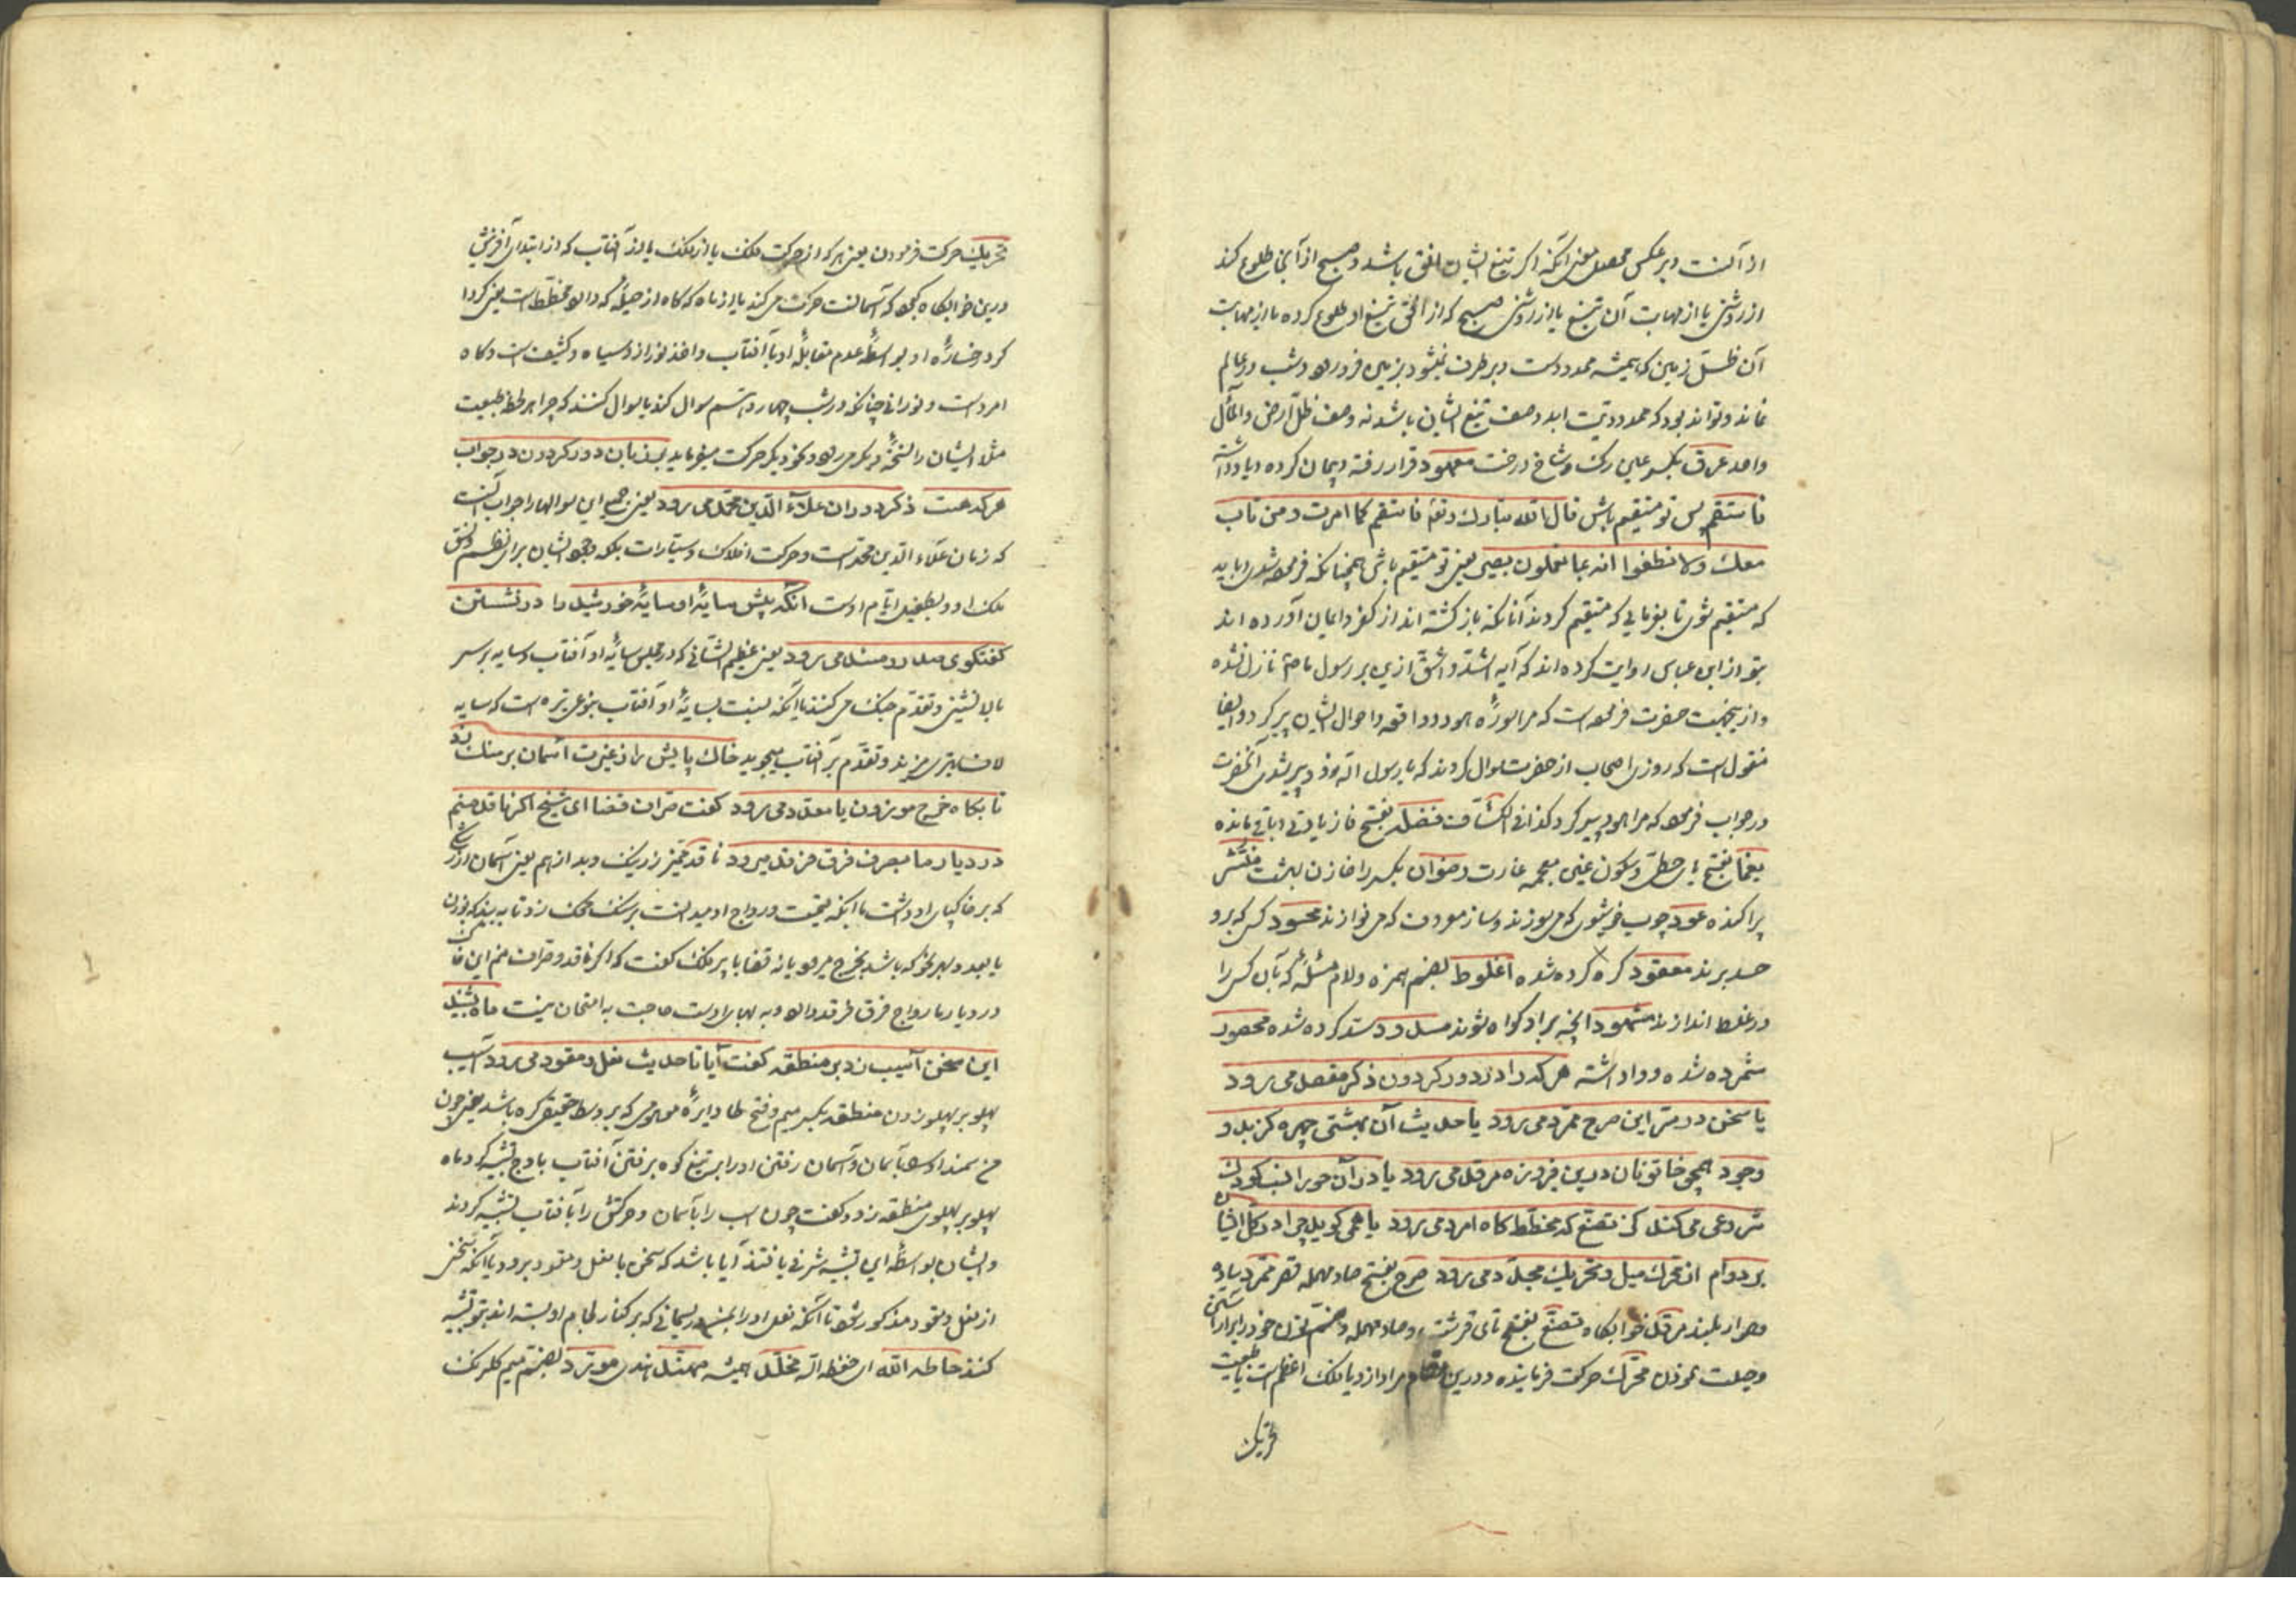 از آنست و بر عکس محصل یعنی آنکه اگر تیغ ایشان افق باشد و صبح از آنجا طلوع کند
از روشنی یا از مهابت آن تیغ یا از روشنی صبح که از افق تیغ او طلوع کرده یا از مهابت
آن ظل زمین که همیشه ممدودست و برطرف نمیشود بزمین فرو رود و شب در عالم
نماند و تواند بود که ممدودیت ابد وصف تیغ ایشان باشد نه وصف ظل ارض و المآل
واحد عرق بکسر عین رک و شاخ درخت معهود قرار رفته و پیمان کرده و یاد داشته
فاستقم پس تو مستقیم باش قال الله تبارک و تعه فاستقم کما امرت و من تاب
معک ولا تطغوا انه بما تعملون بصیر یعنی تو مستقیم باش همچنانکه فرموده شدی باید
که مستقیم شوی تا بفرمایی که مستقیم کردند آنانکه باز کشته اند از کفر و ایمان آورده اند
بتو از ابن عباس روایت کرده اند که آیه اشد و اشق ازین بر رسول ما صم نازل نشده
و ازینجهت حضرت فرموده است که مرا سوره هود و واقعه و احوال ایشان پیر کرد و ایضا
منقول است که روزی اصحاب از حضرت سوال کردند که یا رسول الله زود پیر شدی آنحضرت
در جواب فرمود که مرا هود پیر کرد کذا فی الکشاف فضله بفتح فا زیادتی و باقی مانده
یغما بفتح یای حطی و سکون غین معجمه غارت رضوان بکسر را خازن بهشت منتشر
پراکنده عود چوب خوشبوی که می سوزند و ساز معروف که می نوازند محسود کسی که برو
حسد برند معقود کره کرده شده اغلوط بضم همزه و لام مسئله که بآن کس را
در غلط اندازند مشهود آنچه بر او کواه شوند مسدود سد کرده شده محصور
شمرده شده و واداشته هر که را از دور کردون ذکر مفصل می رود
یا سخن در متر این صرح ممرد می رود یا حدیث آن بهشتی چهره کز بدو
وجود همچو خاتونان درین فیروزه مرقد می رود یا در آن حورا لسب کودک
شروعی می کند کز تصنع که مخطط کاه امرد می رود یا همی کوید چرا در کل اشیا
بر دوام از محرک میل و تحریک مجدد می رود صرح بفتح صاد مهمله قصر ممرد ساده
و هموار بلند مرقد خوابکاه تصنع بفتح تای قرشت و صاد مهمله و ضم نون خود را بر آراستن
و حیلت نمودن محرک حرکت فرماینده و درین مقام مراد ازو یا فلک اعظم است یا طبیعت
تحریک
تحریک حرکت فرمودن یعنی هر که از حرکت فلک یا از فلک یا از آفتاب که از ابتدای آفرینش
درین خوابکاه کبود که آسمانست حرکت می کند یا از ماه که کاه از حیله که دارد مخطط است یعنی کرداکرد
رخساره او بواسطه عدم مقابله او با آفتاب و اخذ نور ازو سیاه و کثیف است و کاه
امرد است و نورانی چنانکه در شب چهاردهم سوال کند یا سوال کنند که چرا هر لحظه طبیعت
مثلا ایشان را لنحه دیکر می رود و بنحو دیکر حرکت میفرماید بر زبان دور کردون در جواب
هر که هست ذکر دوران علاء الدین محمد می رود یعنی جمیع این سوالها را جواب آنست
که زمان علاء الدین محمد است و حرکت افلاک و سیارات بلکه وجود ایشان برای نظم و نسق
ملک او و بطفیل ایام اوست آنکه پیش سایه او سایه خورشید را در نشستن
کفتکوی صدر و مسند می رود یعنی عظیم الشانی که در مجلس سایه او آفتاب و سایه بر سر
بالا نشینی و تقدم جنک می کنند یا آنکه نسبت بسایه او آفتاب بنوعی تیره است که سایه
لاف برابری میزند و تقدم بر آفتاب میجوید خاک پایش را ز غیرت آسمان بر سنک زد
تا بکاه خرج موزون یا معدد می رود کفت صراف قضا ای شیخ اکر ناقد منم
در دیار ما بصرف فرق فرقد میرود ناقد تمیز زر نیک و بد از هم یعنی آسمان از رشکی
که بر خاکپای او داشت با آنکه قیمت و رواج او میدانست بر سنک محک زد تا ببیند که بوزن
یا بعدد و بهر نحو که باشد بخرج می رود یا نه قضا با پیر فلک کفت که اکر ناقد و صراف منم این خاک
در دیار ما رواج فرق فرقد دارد و به بهای اوست حاجت به امتحان نیست ماه بشنید
این سخن آسیب زد بر منطقه کفت آیا تا حدیث نعل و مقود می رود آسیب
پهلو بر پهلو زدن منطقه بکسر میم و فتح طا دایره موهومی که بر وسط حقیقی کره باشد یعنی چون
سم سمند او را بآسمان و آسمان رفتن او را بر تیغ کوه برفتن آفتاب باوج تشبیه کرد ماه
پهلو بر پهلوی منطقه زد و کفت چون اسب را بآسمان و حرکتش را بآفتاب تشبیه کردند
و ایشان بواسطه این تشبیه شرفی یافتند آیا باشد که سخن با نعل و مقود برود یا آنکه سخن
از نعل و مقود مذکور شود تا آنکه نعل او را بمن و ریسمانی که بر کنار لجام او بسته اند بتو تشبیه
کنند حاطه الله ای حفظه الله مخلد همیشه ممتد مورد بضم میم کلرنک